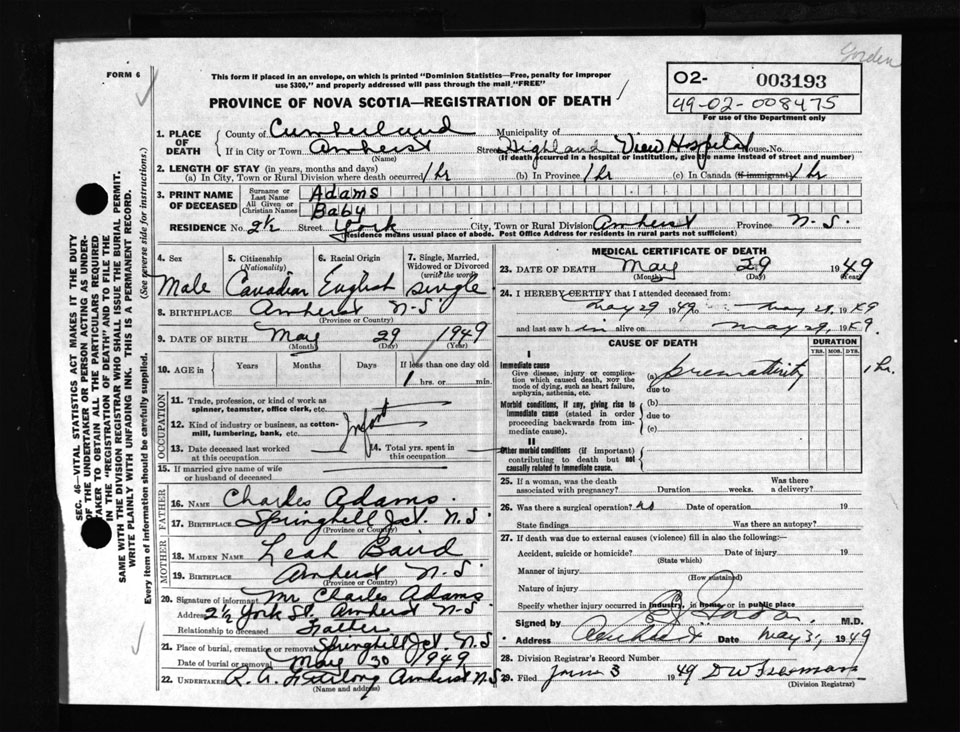 FORM 6
This form if placed in an envelope, on which is printed "Dominion Statistics—Free, penalty for improper
use $300," and properly addressed will pass through the mail "FREE"
Gorden
02- 003193
49-02-008475
For use of the Department only
PROVINCE OF NOVA SCOTIA—REGISTRATION OF DEATH
1. PLACE OF DEATH
County of Cumberland Municipality of
If in City or Town Amherst Street Highland View Hospital House No.
(Name) (If death occurred in a hospital or institution, give the name instead of street and number)
2. LENGTH OF STAY (in years, months and days)
(a) In City, Town or Rural Division where death occurred 1 hr (b) In Province 1 hr (c) In Canada (if immigrant) 1 hr
3. PRINT NAME OF DECEASED
Surname or Last Name Adams
All Given or Christian Names Baby
RESIDENCE No. 2½ Street York City, Town or Rural Division Amherst Province N.S.
(Residence means usual place of abode. Post Office Address for residents in rural parts not sufficient)
4. Sex 5. Citizenship (Nationality) 6. Racial Origin 7. Single, Married, Widowed or Divorced (write the word)
Male Canadian English single
8. BIRTHPLACE Amherst N-S
(Province or Country)
9. DATE OF BIRTH May 29 1949
(Month) (Day) (Year)
10. AGE in Years Months Days If less than one day old
1 hrs. or min.
OCCUPATION
11. Trade, profession, or kind of work as spinner, teamster, office clerk, etc.
12. Kind of industry or business, as cotton-mill, lumbering, bank, etc.
Infant
13. Date deceased last worked at this occupation 14. Total yrs. spent in this occupation
15. If married give name of wife or husband of deceased
FATHER
16. NAME Charles Adams.
17. BIRTHPLACE Springhill Jct. N.S.
(Province or Country)
MOTHER
18. MAIDEN NAME Leah Baird
19. BIRTHPLACE Amherst N.S.
(Province or Country)
20. Signature of informant Mr Charles Adams
Address 2½ York St. Amherst N-S
Relationship to deceased Father
21. Place of burial, cremation or removal Springhill Jct. N.S
Date of burial or removal May 30 1949
22. UNDERTAKER R. A. Amherst N.S
(Name and address)
MEDICAL CERTIFICATE OF DEATH
23. DATE OF DEATH May 29 1949
(Month) (Day) (Year)
24. I HEREBY CERTIFY that I attended deceased from:
May 29 1949 to May 29, 1949
and last saw h im alive on May 29, 1949.
CAUSE OF DEATH DURATION
YRS. MOS. DYS.
I
Immediate cause
Give disease, injury or complication which caused death, not the mode of dying, such as heart failure, asphyxia, asthenia, etc.
(a) prematurity 1 hr.
due to
Morbid conditions, if any, giving rise to immediate cause (stated in order proceeding backwards from immediate cause).
(b)
due to
(c)
II
Other morbid conditions (if important) contributing to death but not causally related to immediate cause.
25. If a woman, was the death associated with pregnancy? Duration weeks. Was there a delivery?
26. Was there a surgical operation? no Date of operation 19
State findings Was there an autopsy?
27. If death was due to external causes (violence) fill in also the following:—
Accident, suicide or homicide? Date of injury 19
(State which)
Manner of injury
(How sustained)
Nature of injury
Specify whether injury occurred in industry, in home or in public place
Signed by M.D.
Address Amherst Date May 31, 1949
28. Division Registrar's Record Number
29. Filed June 3 1949 D W
(Division Registrar)
SEC. 46—VITAL STATISTICS ACT MAKES IT THE DUTY
OF THE UNDERTAKER OR PERSON ACTING AS UNDERTAKER
TO OBTAIN ALL THE PARTICULARS REQUIRED
IN THE "REGISTRATION OF DEATH" AND TO FILE THE
SAME WITH THE DIVISION REGISTRAR WHO SHALL ISSUE THE BURIAL PERMIT.
WRITE PLAINLY WITH UNFADING INK. THIS IS A PERMANENT RECORD.
Every item of information should be carefully supplied. (See reverse side for instructions.)